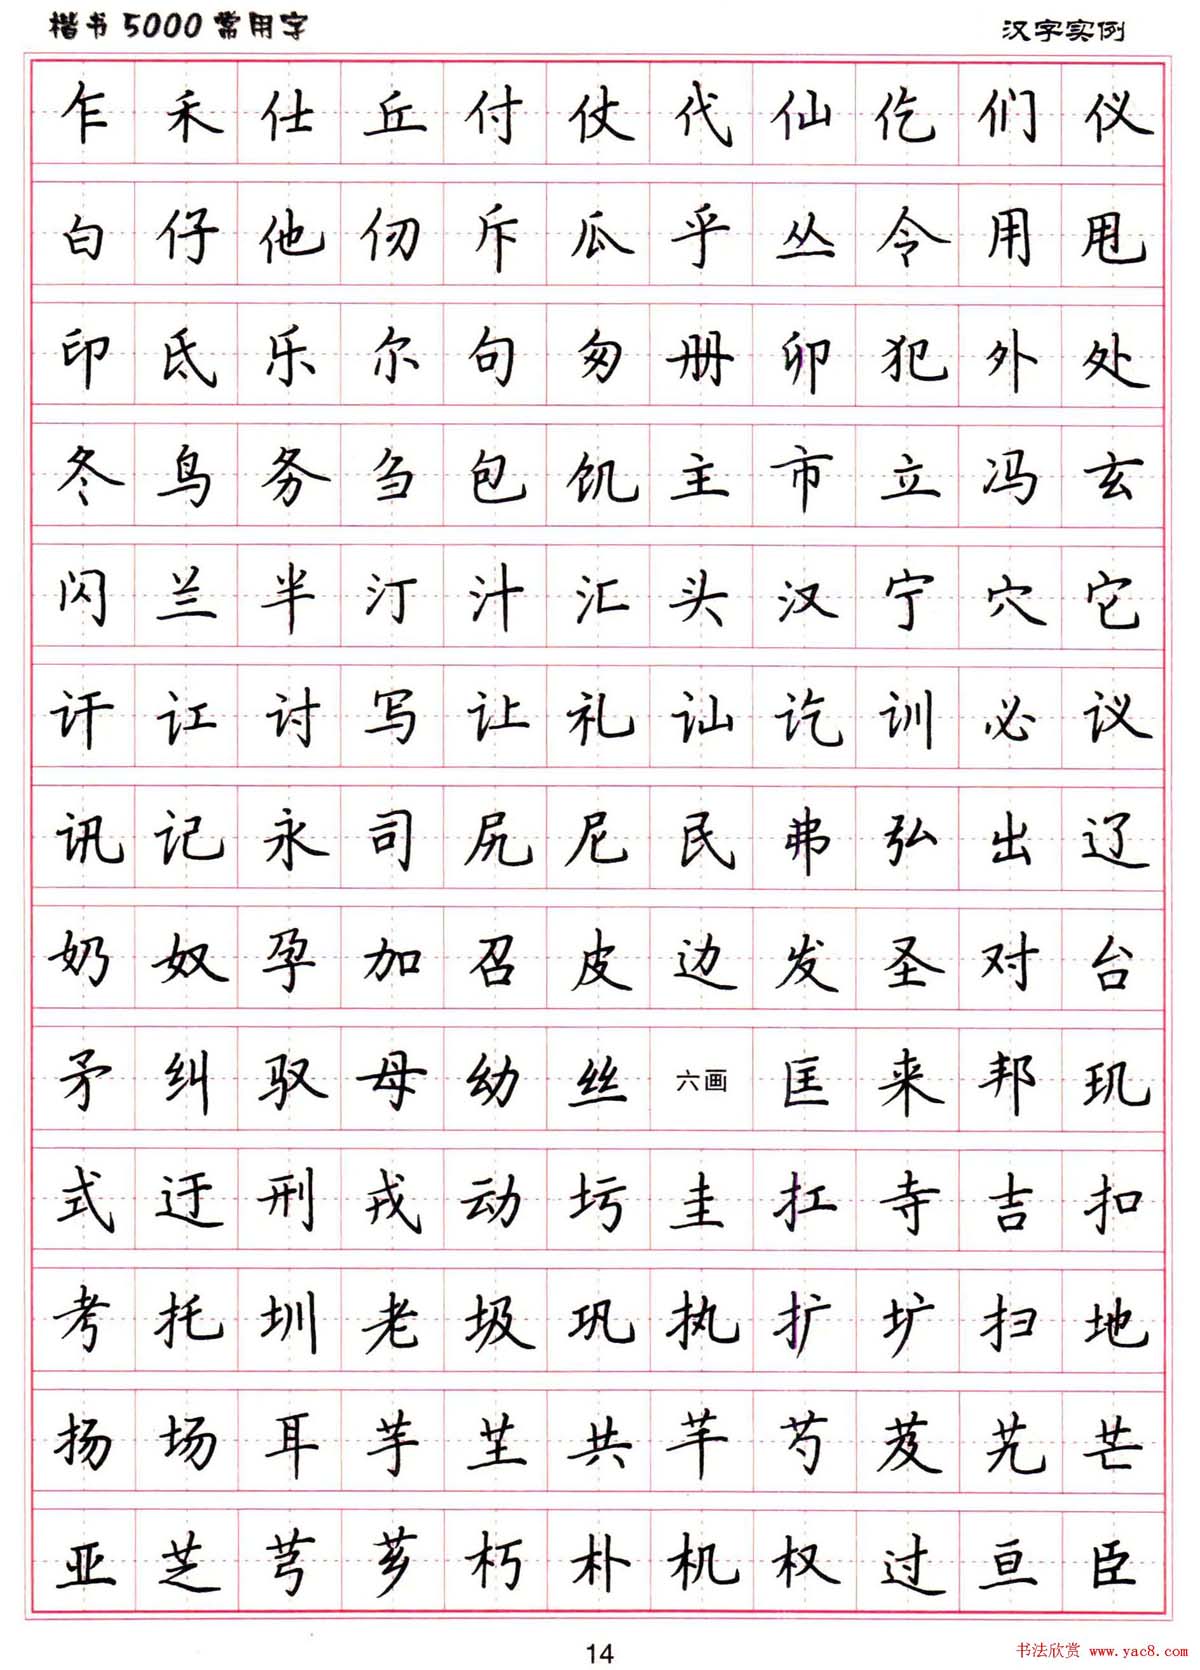 楷书5000常用字 汉字实例
乍 禾 仕 丘 付 仗 代 仙 仡 们 仪
白 仔 他 仞 斥 瓜 乎 丛 令 用 甩
印 氐 乐 尔 句 匆 册 卯 犯 外 处
冬 鸟 务 刍 包 饥 主 市 立 冯 玄
闪 兰 半 汀 汁 汇 头 汉 宁 穴 它
讦 讧 讨 写 让 礼 讪 讫 训 必 议
讯 记 永 司 尻 尼 民 弗 弘 出 辽
奶 奴 孕 加 召 皮 边 发 圣 对 台
矛 纠 驭 母 幼 丝 六画 匡 来 邦 玑
式 迂 刑 戎 动 圬 圭 扛 寺 吉 扣
考 托 圳 老 圾 巩 执 扩 圹 扫 地
扬 场 耳 芋 芏 共 芊 芍 芨 艽 芒
亚 芝 芎 芗 朽 朴 机 权 过 亘 臣
14
书法欣赏 www.yac8.com